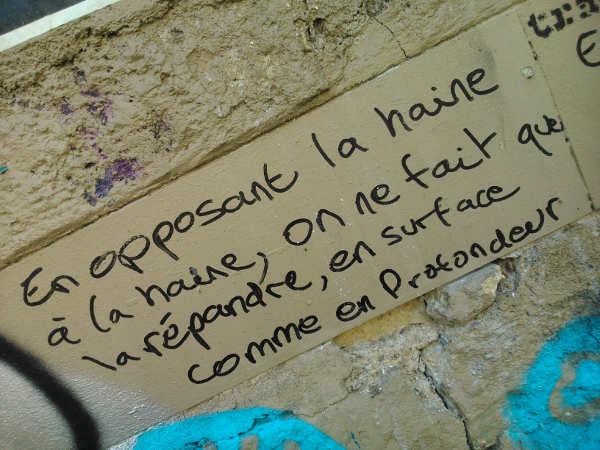 En opposant la haine
à la haine, on ne fait que
la répandre, en surface
comme en profondeur